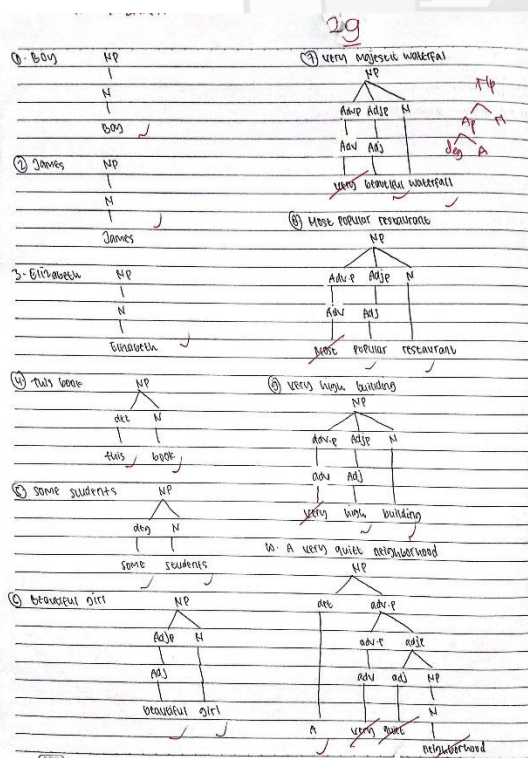 29
1. Boy NP
N
Boy
2 James NP
N
James
3. Elizabeth NP
N
Elizabeth
4 this book NP
det N
this book
5 some students NP
deg N
some students
6 beautiful girl NP
Adjp N
Adj
beautiful girl
7 very majestic waterfal
NP
Advp Adjp N
Adv Adj
very beautiful waterfall
NP
Ap N
deg A
8 Most popular restaurant
NP
Adv.p Adjp N
Adv Adj
Most popular restaurant
9 very high building
NP
adv.p Adjp N
adv Adj
very high building
10. A very quiet neighborhood
NP
det adv.p
adv.p adjp
adv adj NP
N
A very quiet
neighborhood